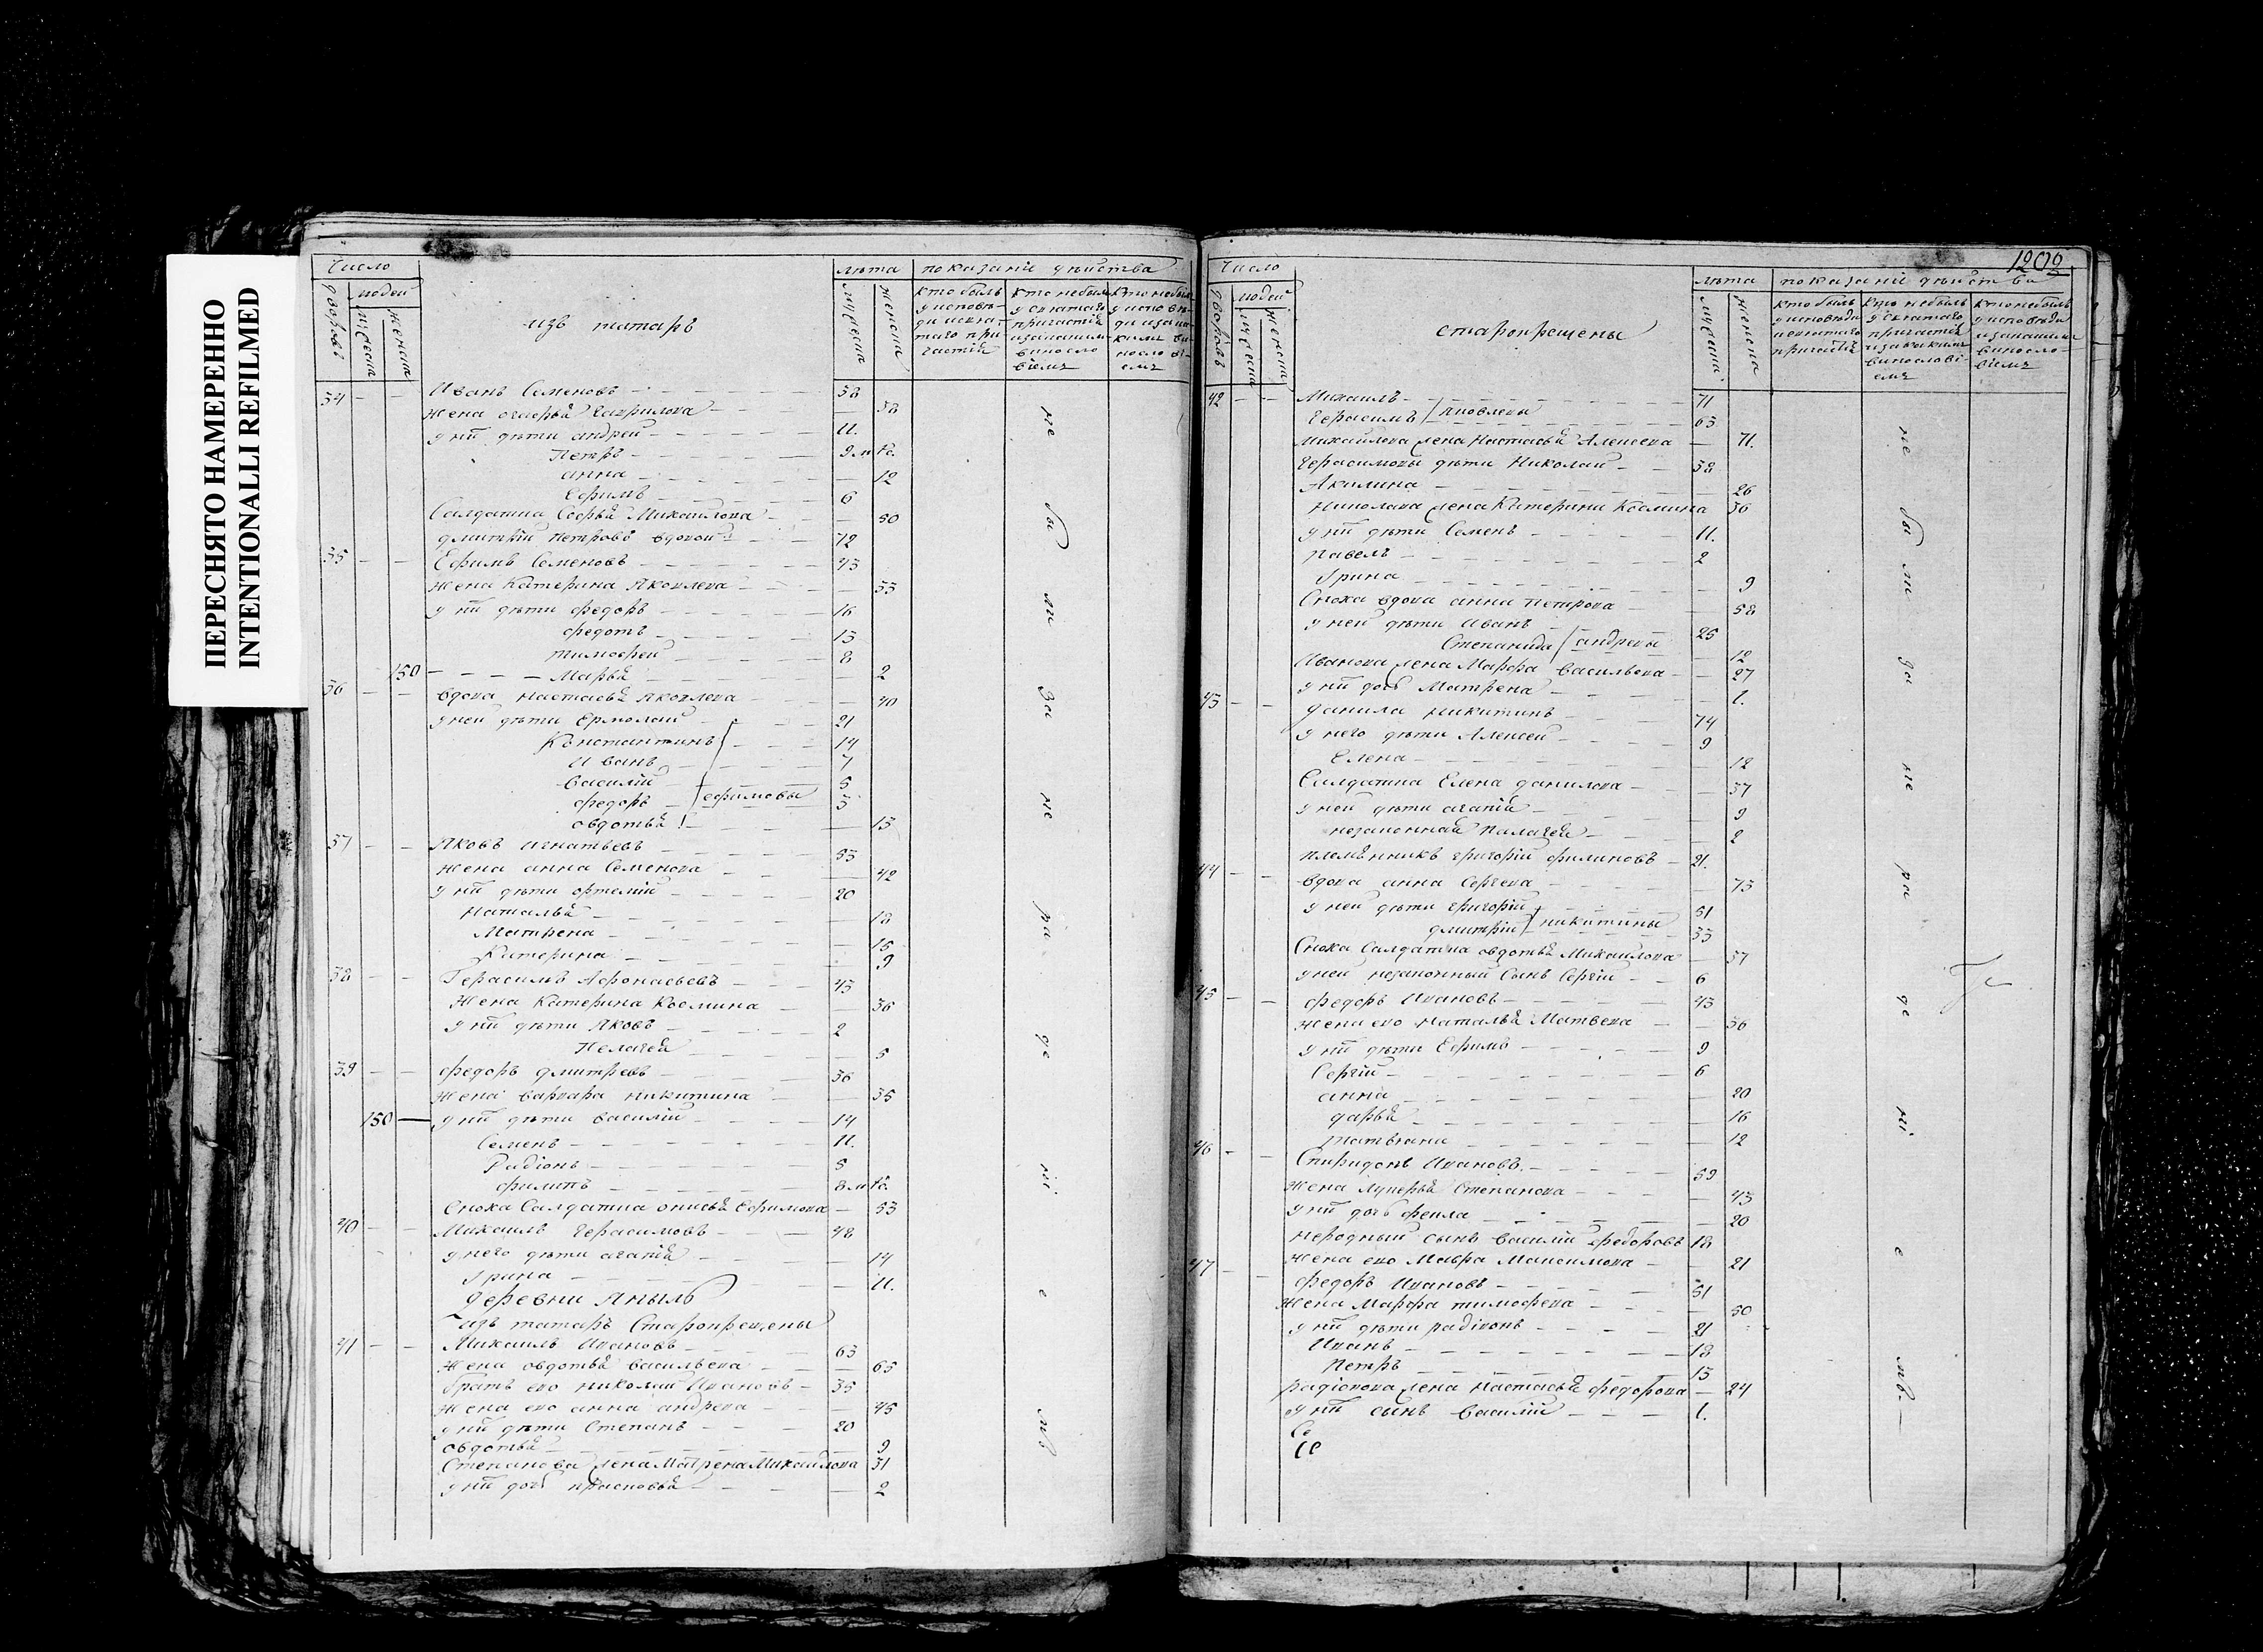 ПЕРЕСНЯТО НАМЕРЕННО
INTENTIONALLI REFILMED
Число
людей
дворовъ
мужеска
женска
изъ татаръ
лѣта
мужеска
женска
показанiе дѣйства
кто былъ
у исповѣ-
ди и свя-
таго при
частiя
34 Иванъ Семеновъ 58
жена Гаврилова 58
у нихъ дѣти андрей 11.
Петръ
анна 12
Ефимъ 6
Салдатка Софья Михайлова 50
дмитрiй Петровъ вдовой 72
35 Ефимъ Семеновъ 43
жена Катерина Яковлева 33
у нихъ дѣти федоръ 16
федотъ 13
тимофей 8
150 Марья 2
36 вдова настасья Яковлева 40
у ней дѣти Ермолай 21
Константинъ 14
Иванъ 7
василiй 5
федоръ ефимовы 3
овдотья 13
37 Яковъ игнатьевъ 53
жена анна Семенова 42
у нихъ дѣти ортемiй 20
наталья 18
Матрена 15
Катерина 9
38 Герасимъ Афонасьевъ 43
жена Катерина Козмина 36
у нихъ дѣти Яковъ 2
Пелагея 5
39 федоръ дмитревъ 36
жена варвара никитина 35
150 у нихъ дѣти василiй 14
Семенъ 11.
Радiонъ 5
филипъ
Сноха Салдатка онисья Ефимова 53
40 Михаилъ Герасимовъ 48
у него дѣти агапiя 14
Ирина 11.
деревни Яныль
изъ татаръ Старокрещены
41 Михаилъ Ивановъ 63
жена овдотья васильева 65
братъ ево николай Ивановъ 35
жена ево анна андрева 45
у нихъ дѣти Степанъ 20
овдотья 9
Степанова жена Матрена Михайлова 31
у нихъ дочь Прасковья 2
не бы ли за не ра де нi е мъ
1203
Число
людей
дворовъ
мужеска
женска
старокрещены
лѣта
мужеска
женска
показанiе дѣйства
кто былъ
у исповѣди
и святаго
причастiя
кто не былъ
у святаго
причастiя
и за какимъ
винословi-
емъ
кто не былъ
у исповѣди
и за какимъ
виносло-
вiемъ
42 Михаилъ 71
Герасимъ Яковлевы 63
Михайлова жена Настасья Алексеева 71.
Герасимовы дѣти Николай 38
Акилина 26
Николава жена Катерина Козмина 36
у нихъ дѣти Семенъ 11.
Павелъ 2
Ирина 9
Сноха вдова анна Петрова 58
у ней дѣти Иванъ 25
Степанида андревы 12
Иванова жена Марфа васильева 27
у нихъ дочь Матрена 1.
43 данила никитинъ 74
у него дѣти Алексей 9
Елена 12
Салдатка Елена данилова 37
у ней дѣти агапiя 9
незаконная Палагея 2
племѣнникъ григорiй филиповъ 21.
44 вдова анна Сергева 73
у ней дѣти григорiй 51
дмитрiй никитины 33
Сноха Салдатка овдотья Михайлова 37
у ней незаконный Сынъ Сергiй 6
45 федоръ Ивановъ 43
жена ево наталья Матвева 36
у нихъ дѣти Ефимъ 9
Сергiй 6
анна 20
дарья 16
татьяна 12
46 Спиридонъ Ивановъ 59
жена Лукерья Степанова 43
у нихъ дочь фекла 20
неродный сынъ василiй федоровъ 18
жена ево Мавра Максимова 21
47 федоръ Ивановъ 51
жена Марфа тимофева 50
у нихъ дѣти радiконъ 21
Иванъ 18
Петръ 13
радiонова жена настасья федорова 24
у нихъ сынъ василiй 1.
не бы ли за не ра де нi е мъ